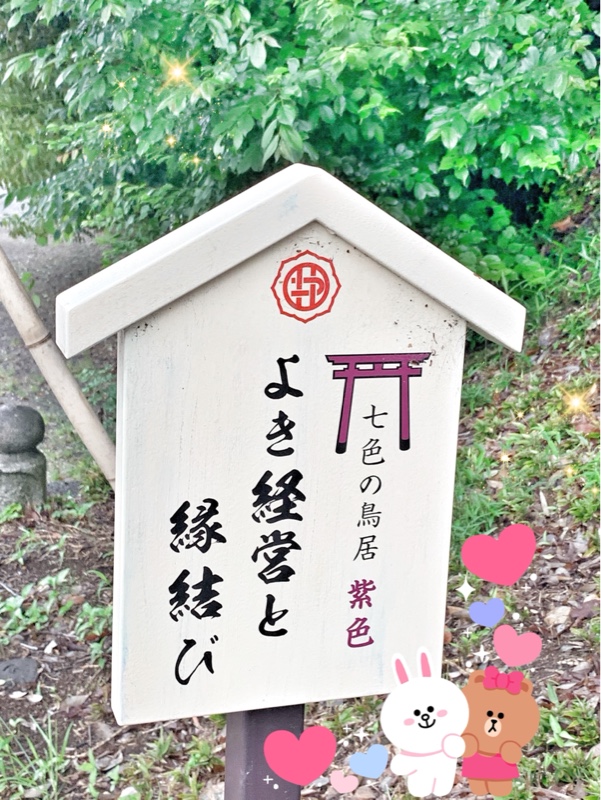 七色の鳥居 紫色
よき経営と
縁結び